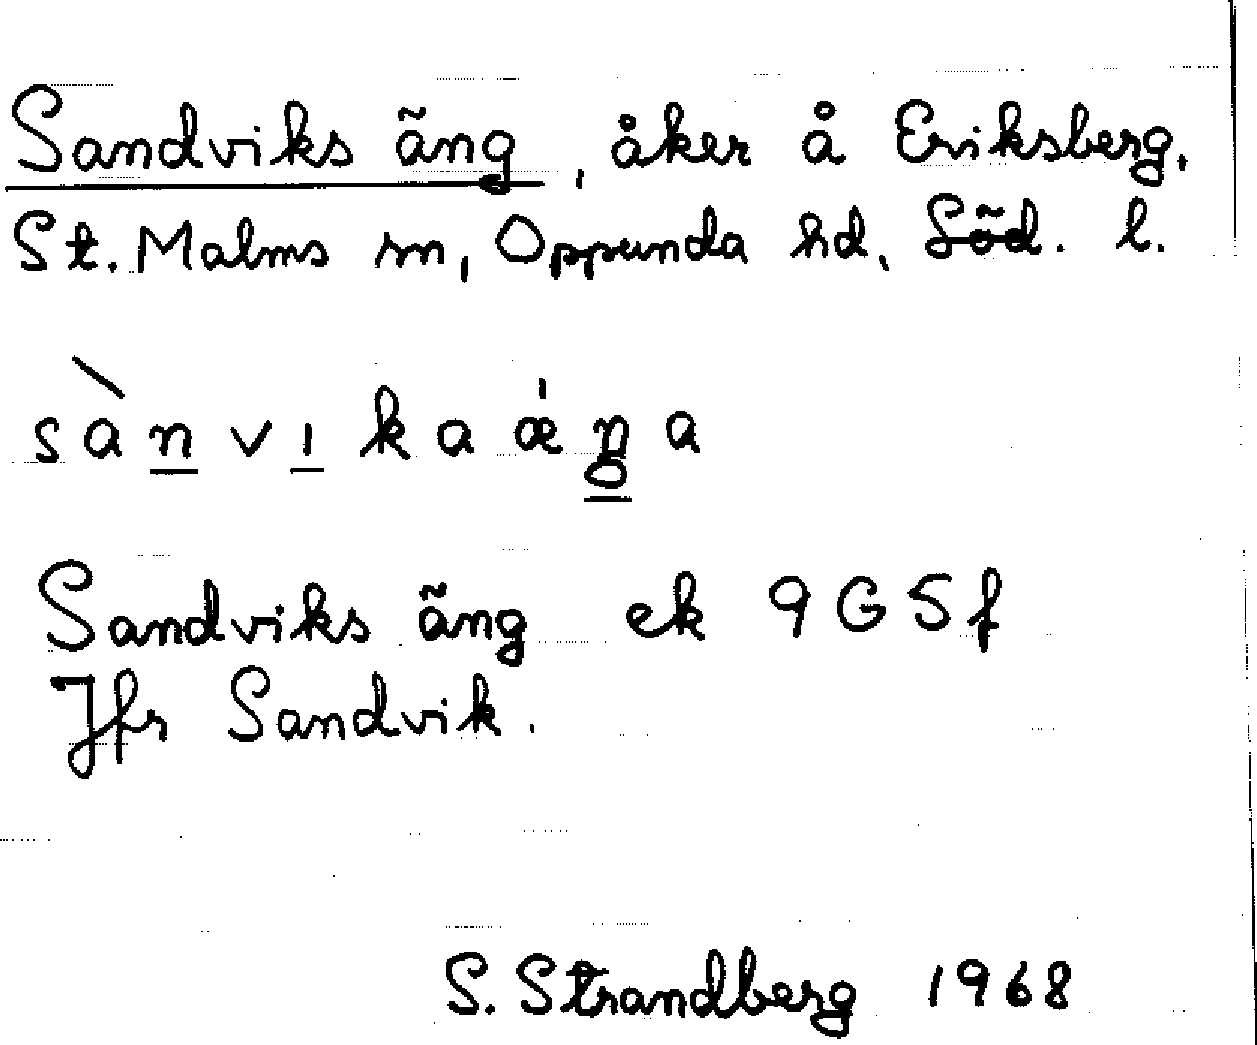 Sandviks äng, åker å Eriksberg,
St. Malms sn, Oppunda hd, Söd. l.
sànvıkaǽŋa
Sandviks äng ek 9G5f
Jfr Sandvik.
S. Strandberg 1968